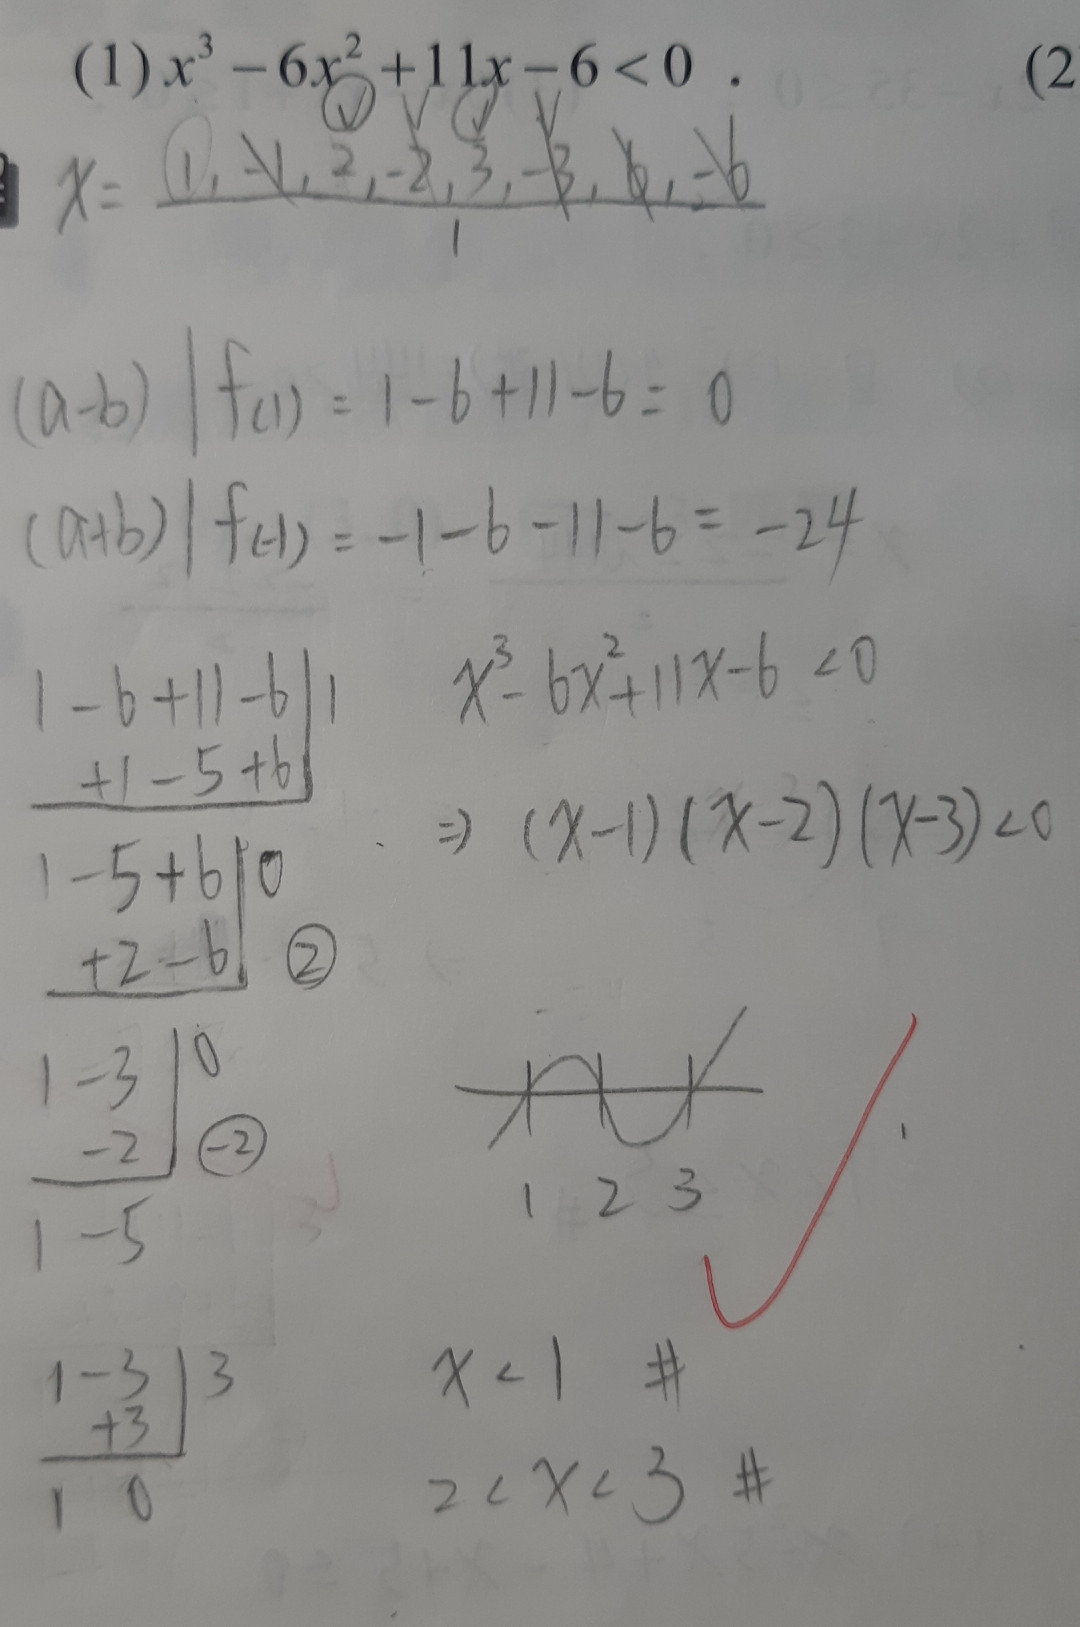 (1) x³ − 6x² + 11x − 6 < 0 . (2
x = 1, -1, 2, -2, 3, -3, 6, -6
1
(a-b) | f(1) = 1-6+11-6 = 0
(a+b) | f(-1) = -1-6-11-6 = -24
1 -6 +11 -6 | 1
+1 -5 +6
1 -5 +6 | 0
+2 -6 ②
1 -3 | 0
-2 (-2)
1 -5
1 -3 | 3
+3
1 0
x³ - 6x² + 11x - 6 < 0
⇒ (x-1)(x-2)(x-3) < 0
1 2 3
x < 1 #
2 < x < 3 #